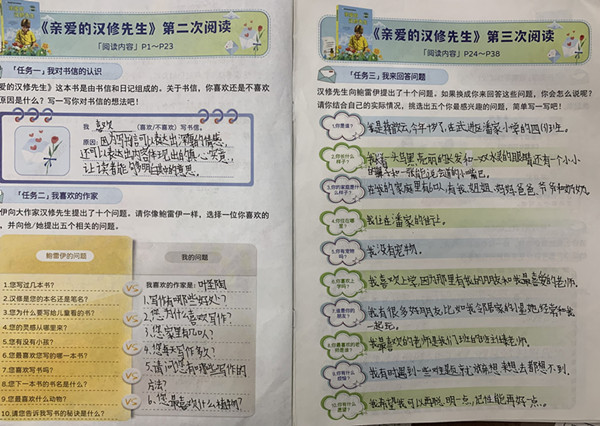 《亲爱的汉修先生》第二次阅读
「阅读内容」P1～P23
「任务一」我对书信的认识
爱的汉修先生》这本书是由书信和日记组成的。关于书信，你喜欢还是不喜欢
原因是什么？写一写你对书信的想法吧！
我 喜欢 （喜欢/不喜欢）写书信。
原因：因为写信可以表达出深厚的情感，
还可以表达出内容体现出的真心实意，
让读者能够明白的意思。
「任务二」我喜欢的作家
伊向大作家汉修先生提出了十个问题。请你像鲍雷伊一样，选择一位你喜欢的
，并向他/她提出五个相关的问题。
鲍雷伊的问题
1.您写过几本书？
2.汉修是您的本名还是笔名？
3.您为什么要写给儿童看的书？
4.您的灵感从哪里来？
5.您有没有小孩？
6.您最喜欢您写的哪一本书？
7.您喜欢写书吗？
8.您下一本书的书名是什么？
9.您最喜欢什么动物？
10.请您告诉我写书的秘诀是什么？
VS
VS
VS
VS
VS
VS
我的问题
我喜欢的作家是：叶圣陶
1.写作有哪些好处？
2.您为什么喜欢写作？
3.您家里有几口人？
4.您每天写作多久？
5.请问您有哪些写作的
方法？
6.您最喜欢什么植物？
《亲爱的汉修先生》第三次阅读
「阅读内容」P24～P38
「任务三」我来回答问题
汉修先生向鲍雷伊提出了十个问题。如果换成你来回答这些问题，你会怎么说呢？
请你结合自己的实际情况，挑选出五个你最感兴趣的问题，简单写一写吧！
1.你是谁？
我是 今年 岁了，在武进区潘家小学的四 班。
2.你长什么样子？
我有一头乌黑、亮丽的长发和一双水灵的眼睛还有个小小
鼻子和一张能说会道的小嘴巴。
3.你的家庭是什么样子？
在我的家庭里有 有我、姐姐、妈妈、爸爸、爷爷和奶奶。
4.你住在哪里？
我住在潘家的 。
5.你有宠物吗？
我没有宠物。
6.你喜欢上学吗？
我喜欢上学，因为那里有我的朋友和我最喜爱的老师。
7.谁是你的朋友？
我有很多好朋友，比如我邻居家的 她经常和我
一起玩。
8.你最喜欢的老师是谁？
我最喜欢的老师是我们班的 老师。
9.你有什么烦恼？
我有时遇到一些难题，我 想去都想不到。
10.你有什么愿望？
我希望我可以再聪明一点，记性能再好一点。